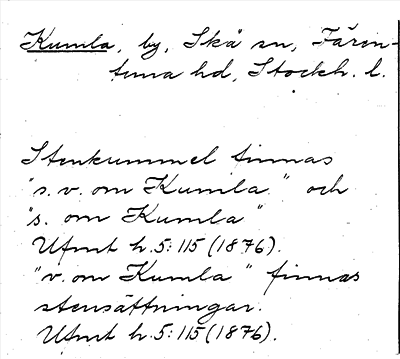 Kumla, by, Skå sn, Fären-
tuna hd, Stockh. l.
Stenkummel finnas
"s.v. om Kumla" och
"s. om Kumla"
Ufmt h.5:115 (1876).
"v. om Kumla" finnas
stensättningar.
Ufmt h.5:115 (1876).